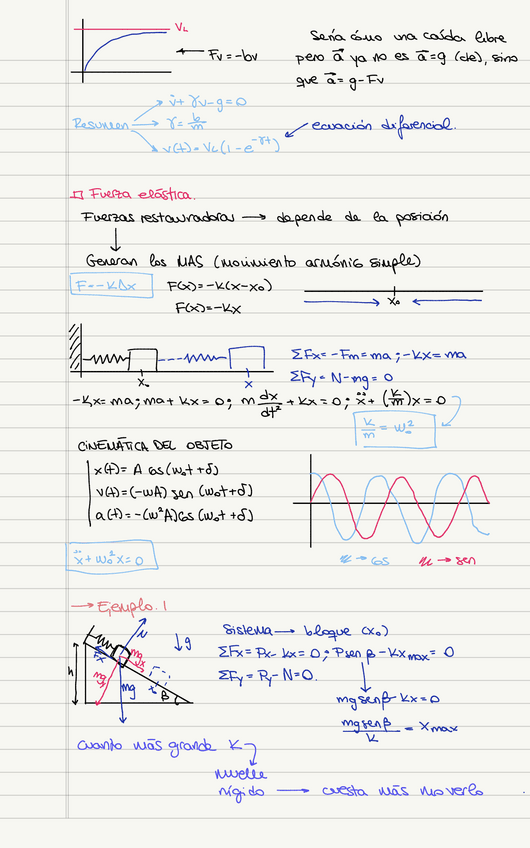 VL
Fv = -bv
Sería como una caída libre
pero a⃗ ya no es a⃗ = g (cte), sino
que a⃗ = g - Fv
v̇ + γv - g = 0
Resumen
γ = b/m
v(t) = VL(1 - e^-γt)
ecuación diferencial.
Fuerza elástica.
Fuerzas restauradoras → depende de la posición
Generan los MAS (movimiento armónico simple)
F = -kΔx
F(x) = -k(x - x₀)
F(x) = -kx
x₀
ΣFx = -Fm = ma ; -kx = ma
ΣFy = N - mg = 0
x₀
x
-kx = ma ; ma + kx = 0 ; m dx/dt² + kx = 0 ; ẍ + (k/m)x = 0
k/m = ω₀²
CINEMÁTICA DEL OBJETO
x(t) = A cos(ω₀t + δ)
v(t) = (-ωA) sen (ω₀t + δ)
a(t) = -(ω²A)cos (ω₀t + δ)
ẍ + ω₀²x = 0
→ cos
→ sen
→ Ejemplo. 1
N
↓g
h
mg
β
Sistema → bloque (x₀)
ΣFx = Px - kx = 0 ; P sen β - kx max = 0
ΣFy = Py - N = 0.
mg sen β - kx = 0
mg sen β / k = x max
cuanto más grande k
muelle
rígido → cuesta más moverlo